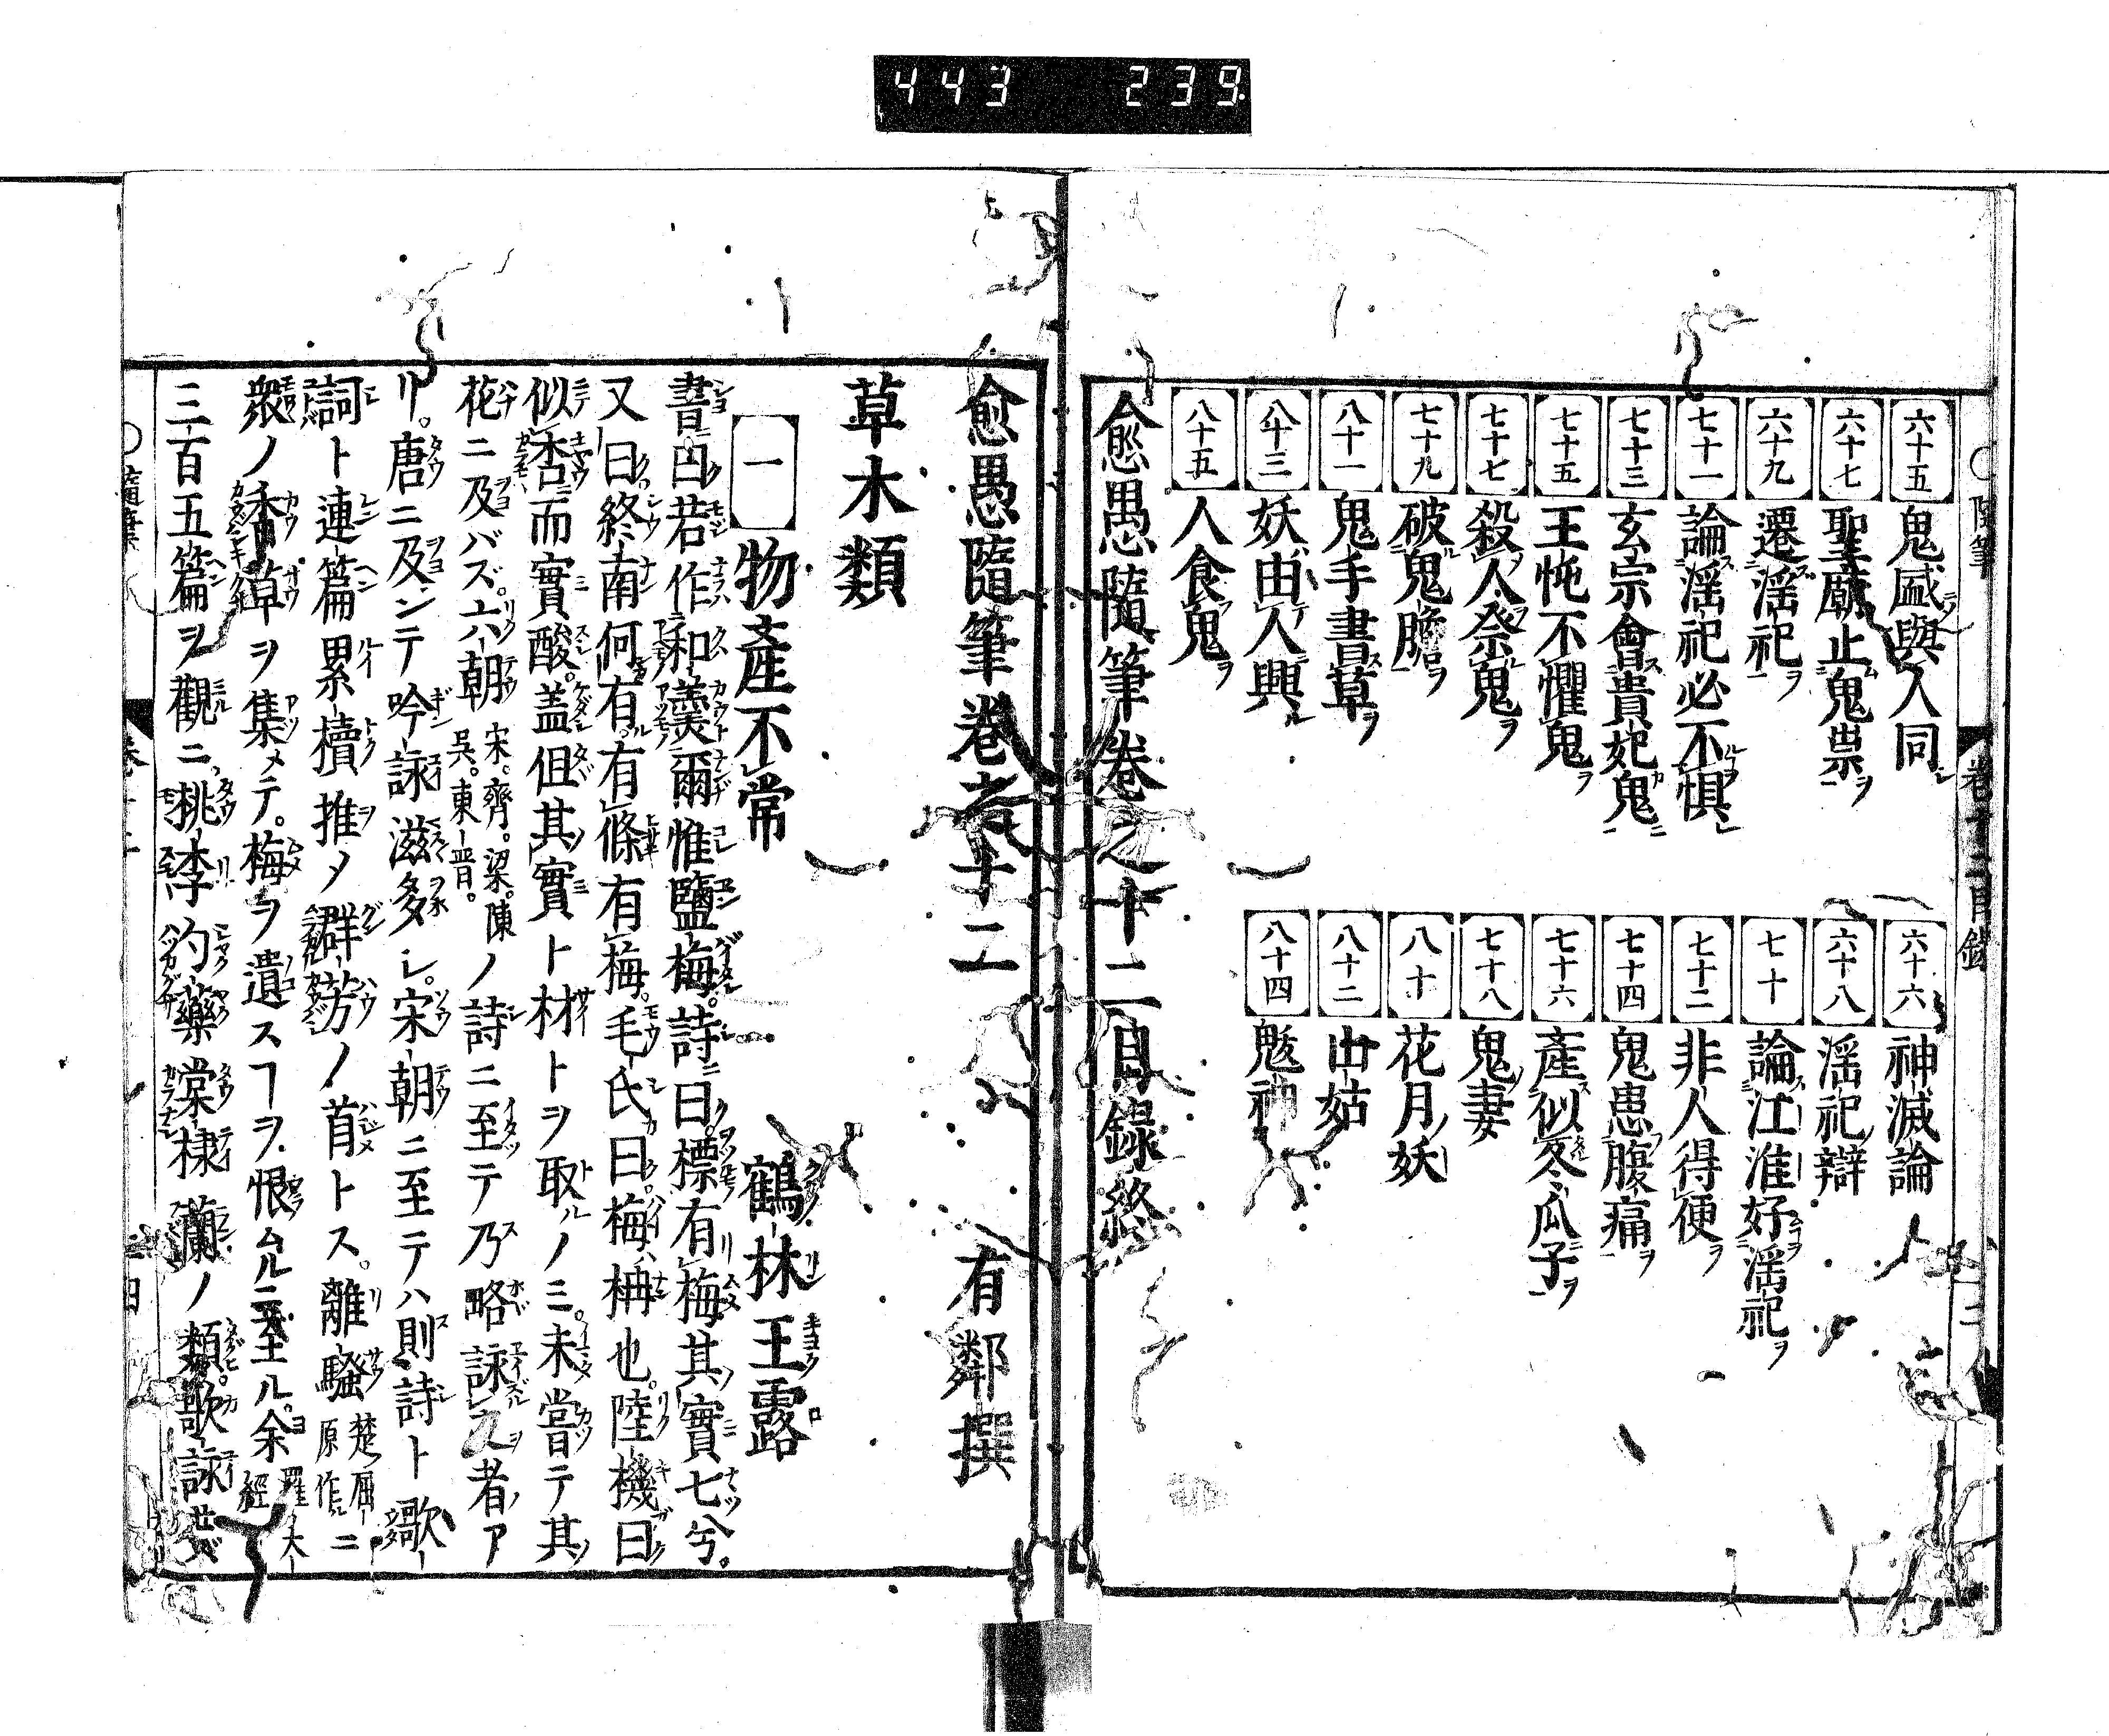 443 239
六十五 鬼盛與人同
六十六 神滅論
六十七 聖廟止鬼祟
六十八 淫祀辯
六十九 遷淫祀
七十 論江淮好淫祀
七十一 論淫祀必不惧
七十二 非人得便
七十三 玄宗會貴妃鬼
七十四 鬼患腹痛
七十五 王忳不懼鬼
七十六 產似冬瓜子
七十七 殺人祭鬼
七十八 鬼妻
七十九 破鬼膽
八十 花月妖
八十一 鬼手書草
八十二 山姑
八十三 妖由人興
八十四 魃神
八十五 人食鬼
愈愚隨筆卷之十二目錄終
愈愚隨筆卷之十二 有鄰撰
草木類
一 物產不常 鶴林玉露
書曰若作和羹爾惟鹽梅詩曰標有梅其實七兮
又曰終南何有有條有梅毛氏曰梅ハ枏也陸機曰
似杏而實酸蓋但其實ト材トヲ取ルノミ未嘗テ其
花ニ及バズ六朝宋齊梁陳吳東晋ノ詩ニ至テ乃略詠之者ア
リ唐ニ及ンテ吟詠滋多シ宋朝ニ至テハ則詩ト歌
詞ト連篇累牘推メ群芳ノ首トス離騷楚屈原作ニ
衆ノ香草ヲ集メテ梅ヲ遺スヿヲ恨ムルニ至ル余羅大經
三百五篇ヲ觀ニ桃李芍藥棠棣蘭ノ類歌詠セ